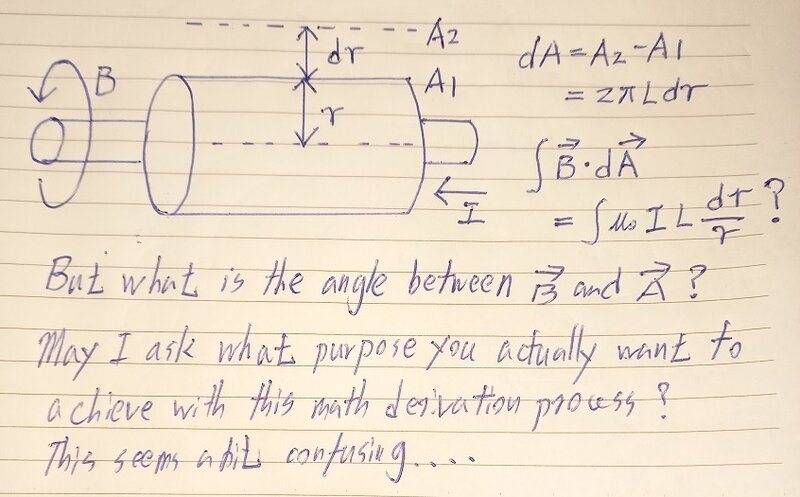 A2
dr
dA = A2 - A1
B
A1
= 2πLdr
r
∫B⃗·dA⃗
I
= ∫μ₀ I L dr/r ?
But what is the angle between B⃗ and A⃗ ?
May I ask what purpose you actually want to
achieve with this math derivation process ?
This seems a bit confusing....